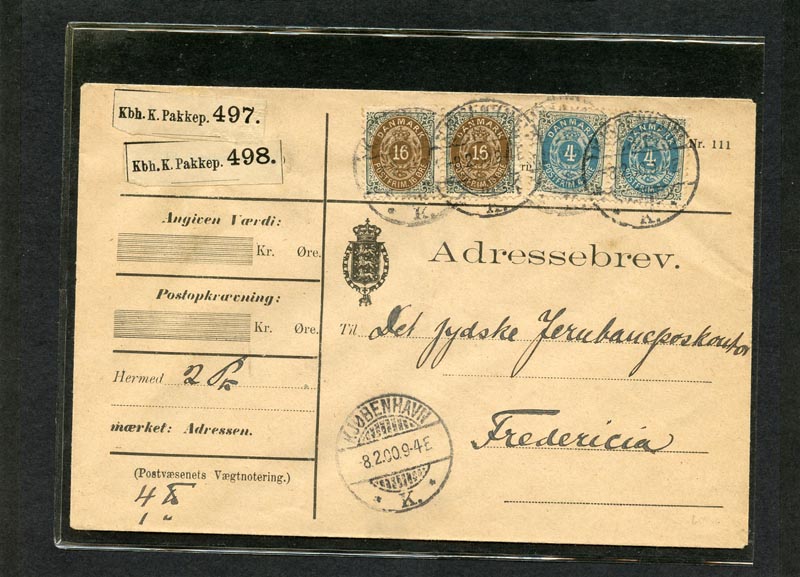 Kbh. K. Pakkep. 497.
Kbh. K. Pakkep. 498.
DANMARK 16 POSTFRIM
DANMARK 16 POSTFRIM
DANMARK 4 POSTFRIM
DANMARK 4 POSTFRIM
Nr. 111
K.
K.
K.
Angiven Værdi:
Kr. Øre.
Postopkrævning:
Kr. Øre.
Hermed 2 Pk
mærket: Adressen.
(Postvæsenets Vægtnotering.)
4
1 "
Adressebrev.
Til Det jydske Jernbanepostkontor
Fredericia
KJØBENHAVN
8.2.00.9-4E
K.